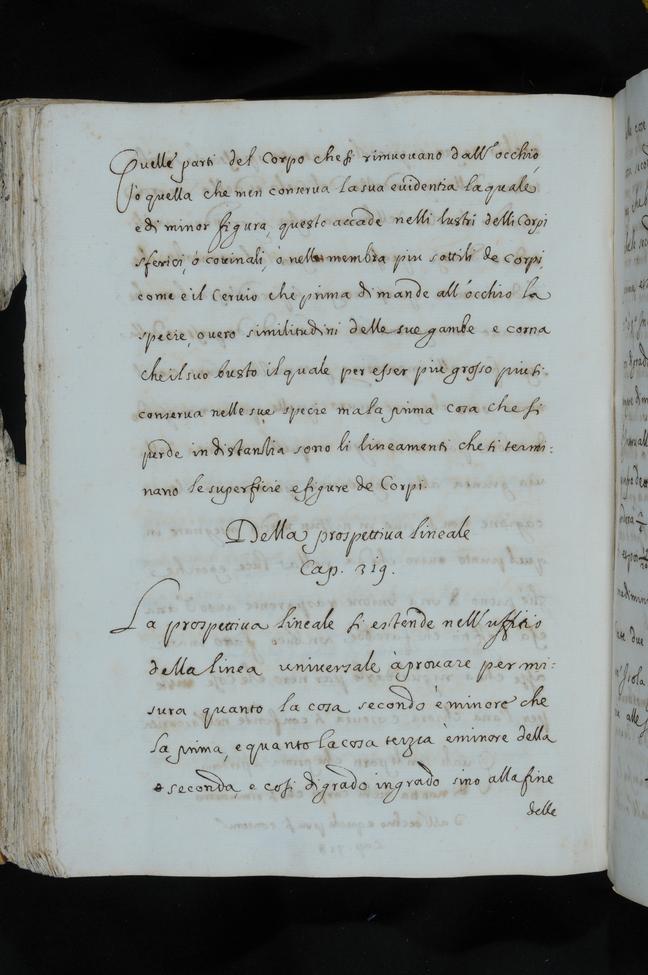 Quelle parti del Corpo che si rimuovano dall'occhio,
o quella che men conserva la sua evidentia la quale
e di minor figura, questo accade nelli lustri delli Corpi
sferici, o covinali, o nelle membra piu sottili de corpi,
come è il Cervio che prima di mande all'occhio la
specie, overo similitudini delle sue gambe e corna
che il suo busto il quale per esser piu grosso piu ti
conserva nelle sue specie ma la prima cosa che si
perde in distantia sono li lineamenti che ti termi:
nano le superficie e figure de Corpi.
Della prospettiva lineale
Cap. 319.
La prospettiva lineale si estende nell'uffitio
della linea universale à provare per mi:
sura quanto la cosa secondo è minore che
la prima, e quanto la cosa terza è minore della
seconda, e cosi di grado in grado sino alla fine
delle